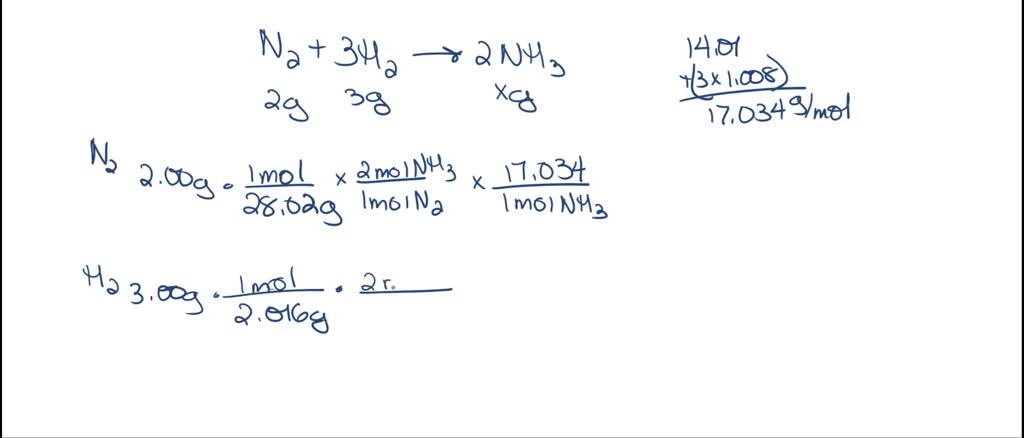 N₂ + 3H₂ → 2NH₃
2g 3g xg
14.01
+(3×1.008)
17.034 g/mol
N₂ 2.00g · 1mol/28.02g × 2molNH₃/1molN₂ × 17.034/1molNH₃
H₂ 3.00g · 1mol/2.016g · 2